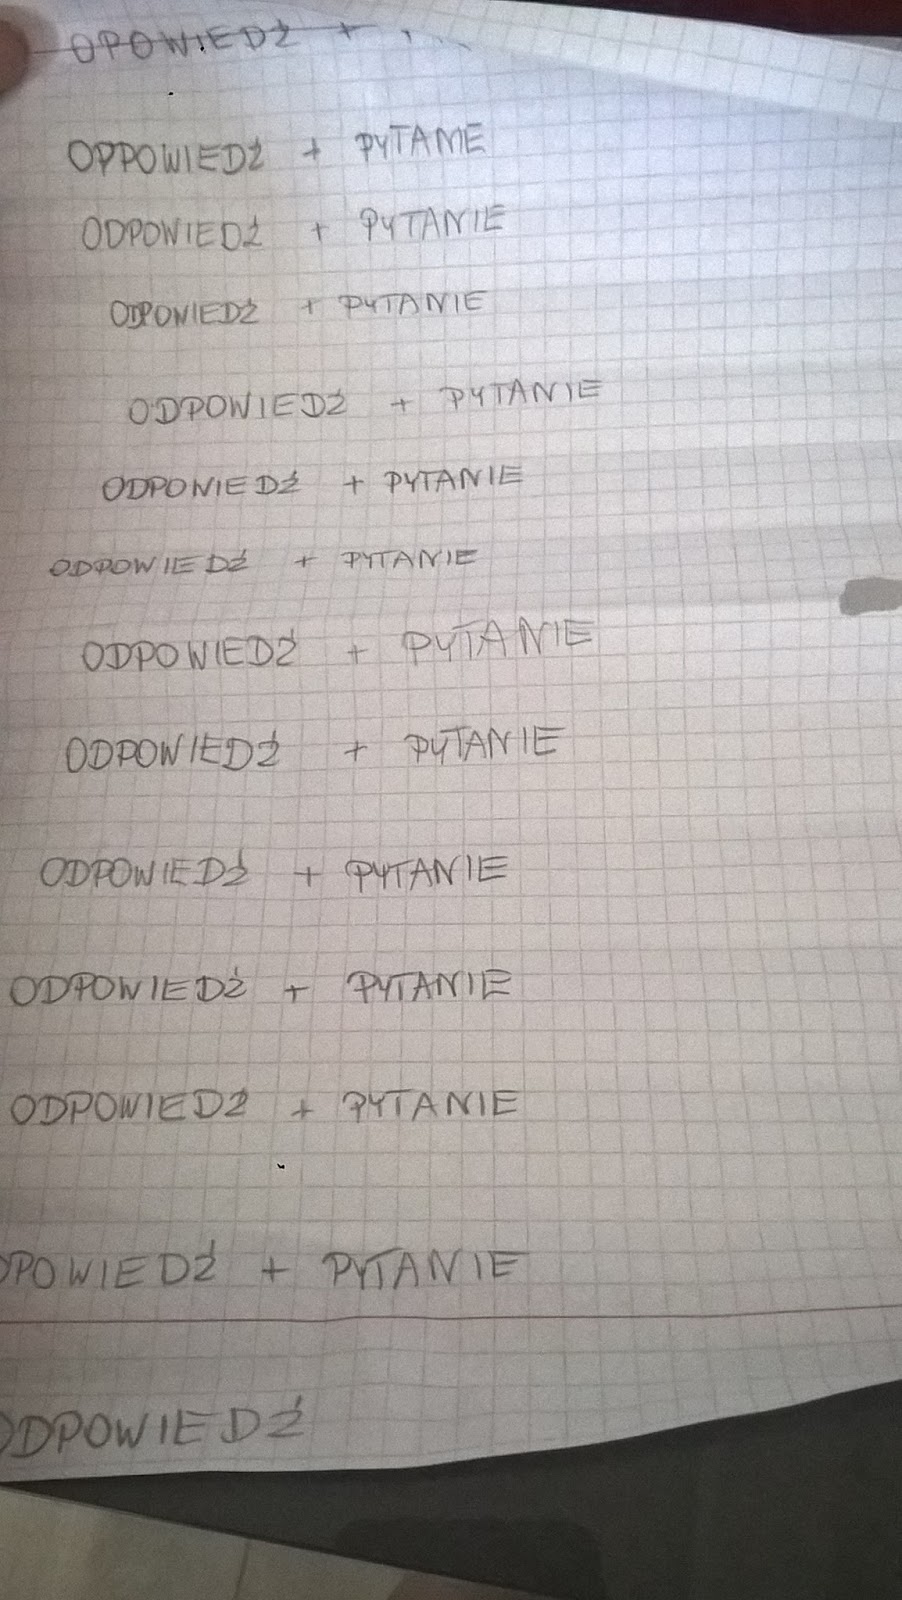 OPOWIEDŹ +
ODPOWIEDŹ + PYTANIE
ODPOWIEDŹ + PYTANIE
ODPOWIEDŹ + PYTANIE
ODPOWIEDŹ + PYTANIE
ODPOWIEDŹ + PYTANIE
ODPOWIEDŹ + PYTANIE
ODPOWIEDŹ + PYTANIE
ODPOWIEDŹ + PYTANIE
ODPOWIEDŹ + PYTANIE
ODPOWIEDŹ + PYTANIE
ODPOWIEDŹ + PYTANIE
DPOWIEDŹ + PYTANIE
ODPOWIEDŹ